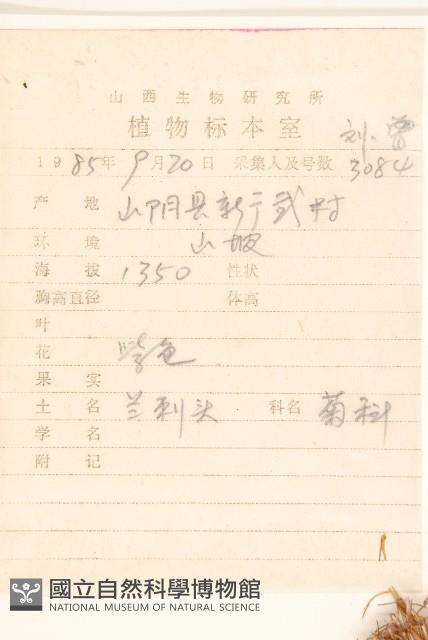 山西生物研究所
植物标本室
刘、曾
1985年9月20日 采集人及号数 3084
产地 山阴县新于武村
环境 山坡
海拔 1350 性状
胸高直径 体高
叶
花 紫色
果实
土名 兰刺头 科名 菊科
学名
附记
國立自然科學博物館
NATIONAL MUSEUM OF NATURAL SCIENCE